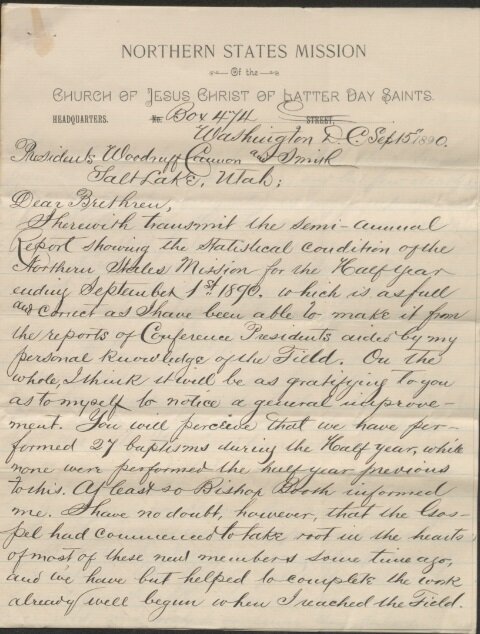 NORTHERN STATES MISSION
Of the
CHURCH OF JESUS CHRIST OF LATTER DAY SAINTS.
HEADQUARTERS. No. Box 474 STREET,
Washington D.C. Sept 15" 1890.
Presidents Woodruff Cannon and Smith
Salt Lake, Utah;
Dear Brethren,
I herewith transmit the semi-annual
Report showing the statistical condition of the
Northern States Mission for the Half Year
ending September 1st 1890. which is as full
and correct as I have been able to make it from
the reports of Conference Presidents aided by my
personal knowledge of the Field. On the
whole, I think it will be as gratifying to you
as to myself to notice a general improve-
ment. You will perceive that we have per-
formed 27 baptisms during the Half year, while
none were performed the half year previous
to this. At least so Bishop Booth informed
me. I have no doubt, however, that the Gos-
pel had commenced to take root in the hearts
of most of these new members some time ago,
and we have but helped to complete the work
already well begun when I reached the Field.